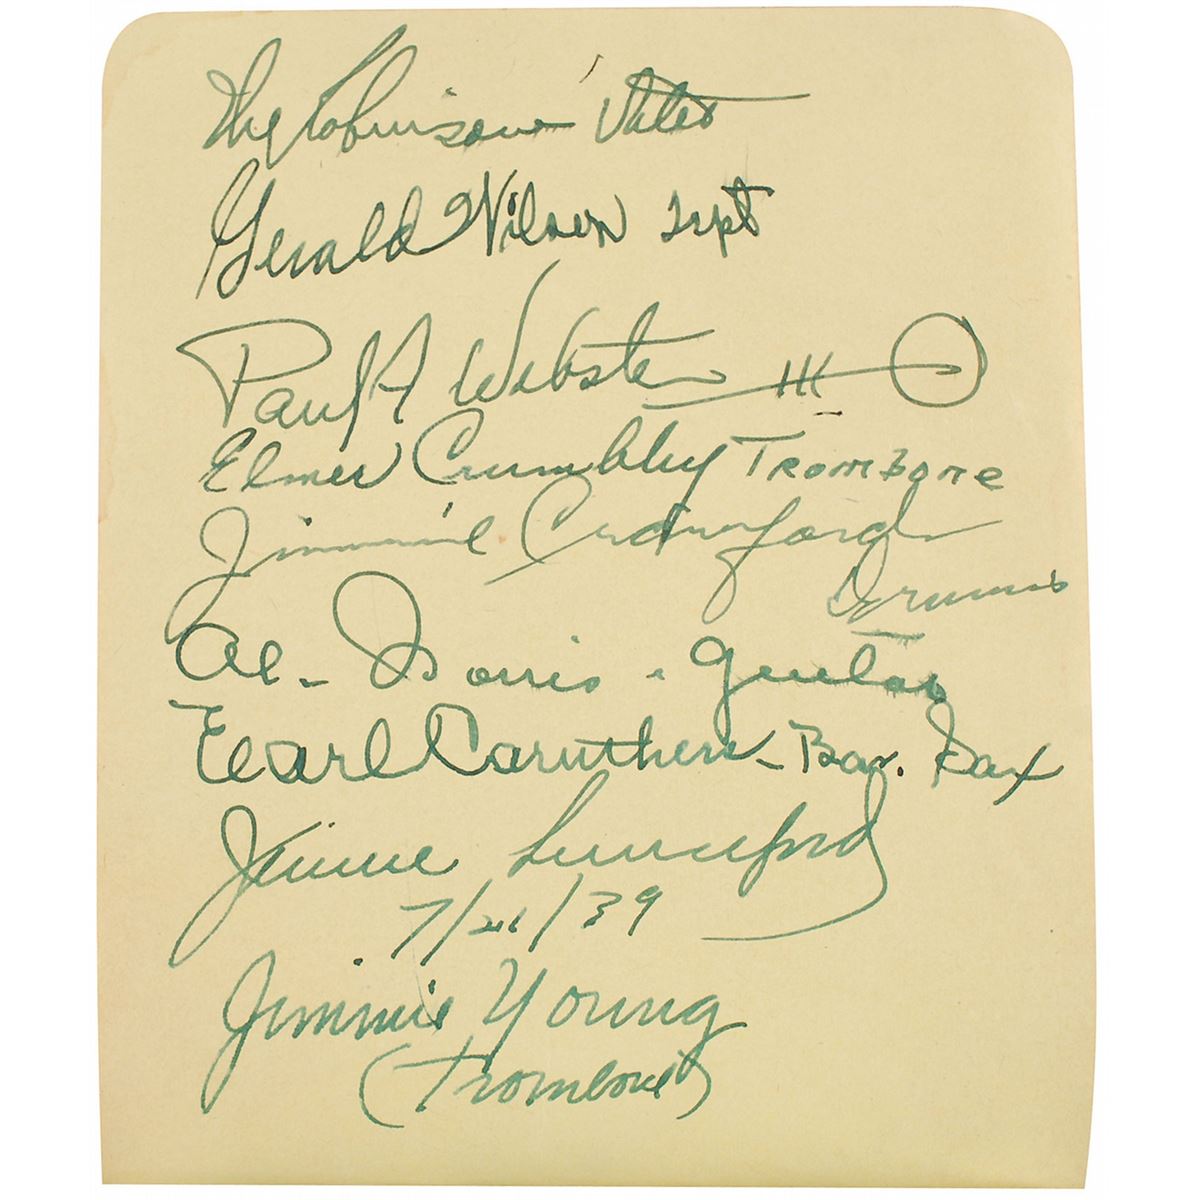 The
Gerald Wilson Trpt
Paul A Webster III
Elmer Crumbley Trombone
Jimmie Crawford
Drums
Al - Norris - guitar
Earl Caruthers - Bar. Sax
Jimmie Lunceford
7/21/39
Jimmie Young
(Trombone)